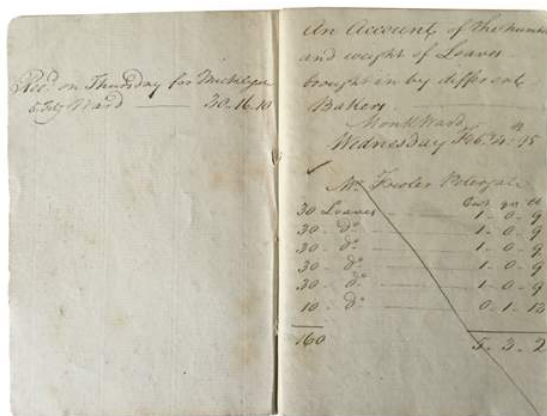 Recd. on Thursday for Micklegate
5 Feby Ward — 30.16.10
An Account of the number
and weight of Loaves
brought in by different
Bakers
Monk Ward
Wednesday Feb. 4th 95
Mr. Fowler Petergate
Cwt qrs lb
30 Loaves - 1 - 0 - 9
30 - do - 1 - 0 - 9
30 - do - 1 - 0 - 9
30 - do - 1 - 0 - 9
30 - do - 1 - 0 - 9
10 - do - 0 - 1 - 13
160 5 - 3 - 2